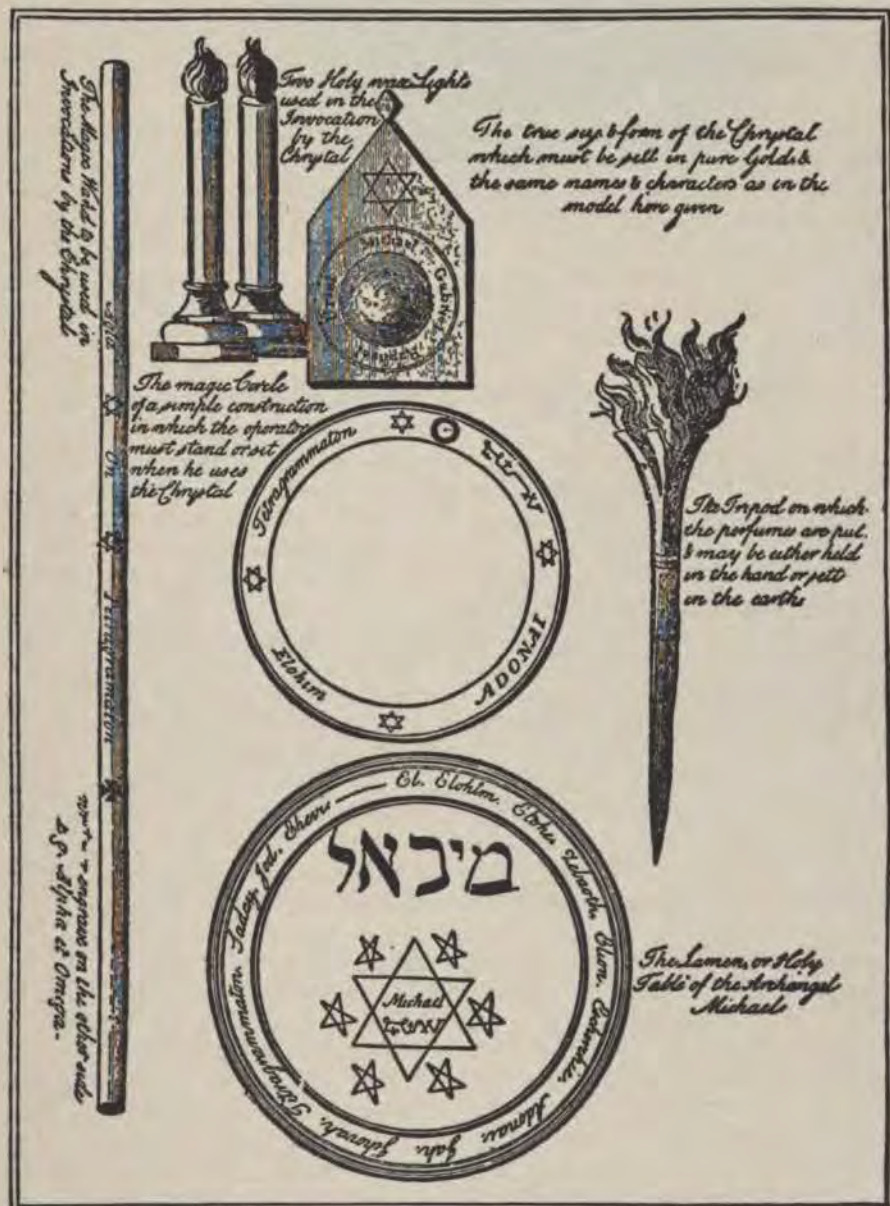 The Magic Wand to be used in
Invocations by the Chrystal
Agla
On
Tetragramaton
write or engrave on the other side
Alpha et Omega -
Two Holy wax Lights
used in the
Invocation
by the
Chrystal
The true size & form of the Chrystal
which must be sett in pure Gold &
the same names & characters as in the
model here given
Michael
Gabriel
Uriel
Raphael
The magic Circle
of a simple construction
in which the operator
must stand or sit
when he uses
the Chrystal
Tetragrammaton
ADONAI
Elohim
The Tripod on which
the perfumes are put.
& may be either held
in the hand or sett
in the earth
El. Elohim. Elohe. Zebaoth. Elion. Adonai. Jah. Jehovah. Tetragrammaton. Saday. Jod.
מיכאל
Michael
The Lamen, or Holy
Table of the Archangel
Michael